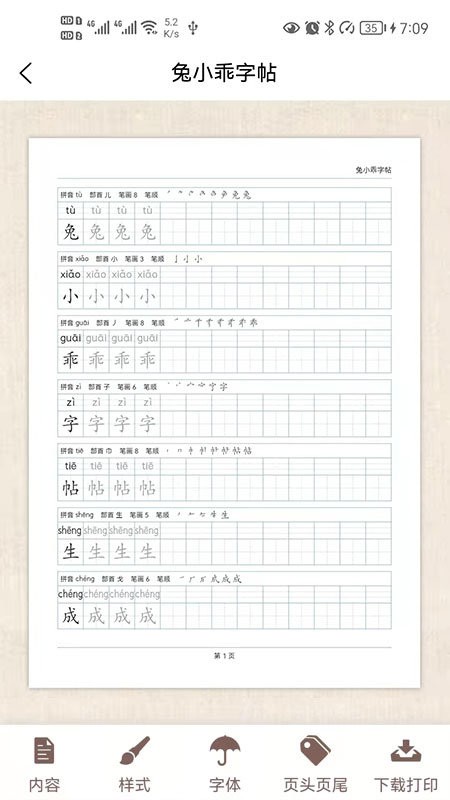 HD 1 4G 4G 5.2 K/s 35 7:09
HD 2
兔小乖字帖
兔小乖字帖
拼音 tù 部首 儿 笔画 8 笔顺
tù tù tù tù
兔 兔 兔 兔
拼音 xiǎo 部首 小 笔画 3 笔顺
xiǎo xiǎo xiǎo xiǎo
小 小 小 小
拼音 guāi 部首 丿 笔画 8 笔顺
guāi guāi guāi guāi
乖 乖 乖 乖
拼音 zì 部首 子 笔画 6 笔顺
zì zì zì zì
字 字 字 字
拼音 tiē 部首 巾 笔画 8 笔顺
tiē tiē tiē tiē
帖 帖 帖 帖
拼音 shēng 部首 生 笔画 5 笔顺
shēng shēng shēng shēng
生 生 生 生
拼音 chéng 部首 戈 笔画 6 笔顺
chéng chéng chéng chéng
成 成 成 成
第 1 页
内容 样式 字体 页头页尾 下载打印